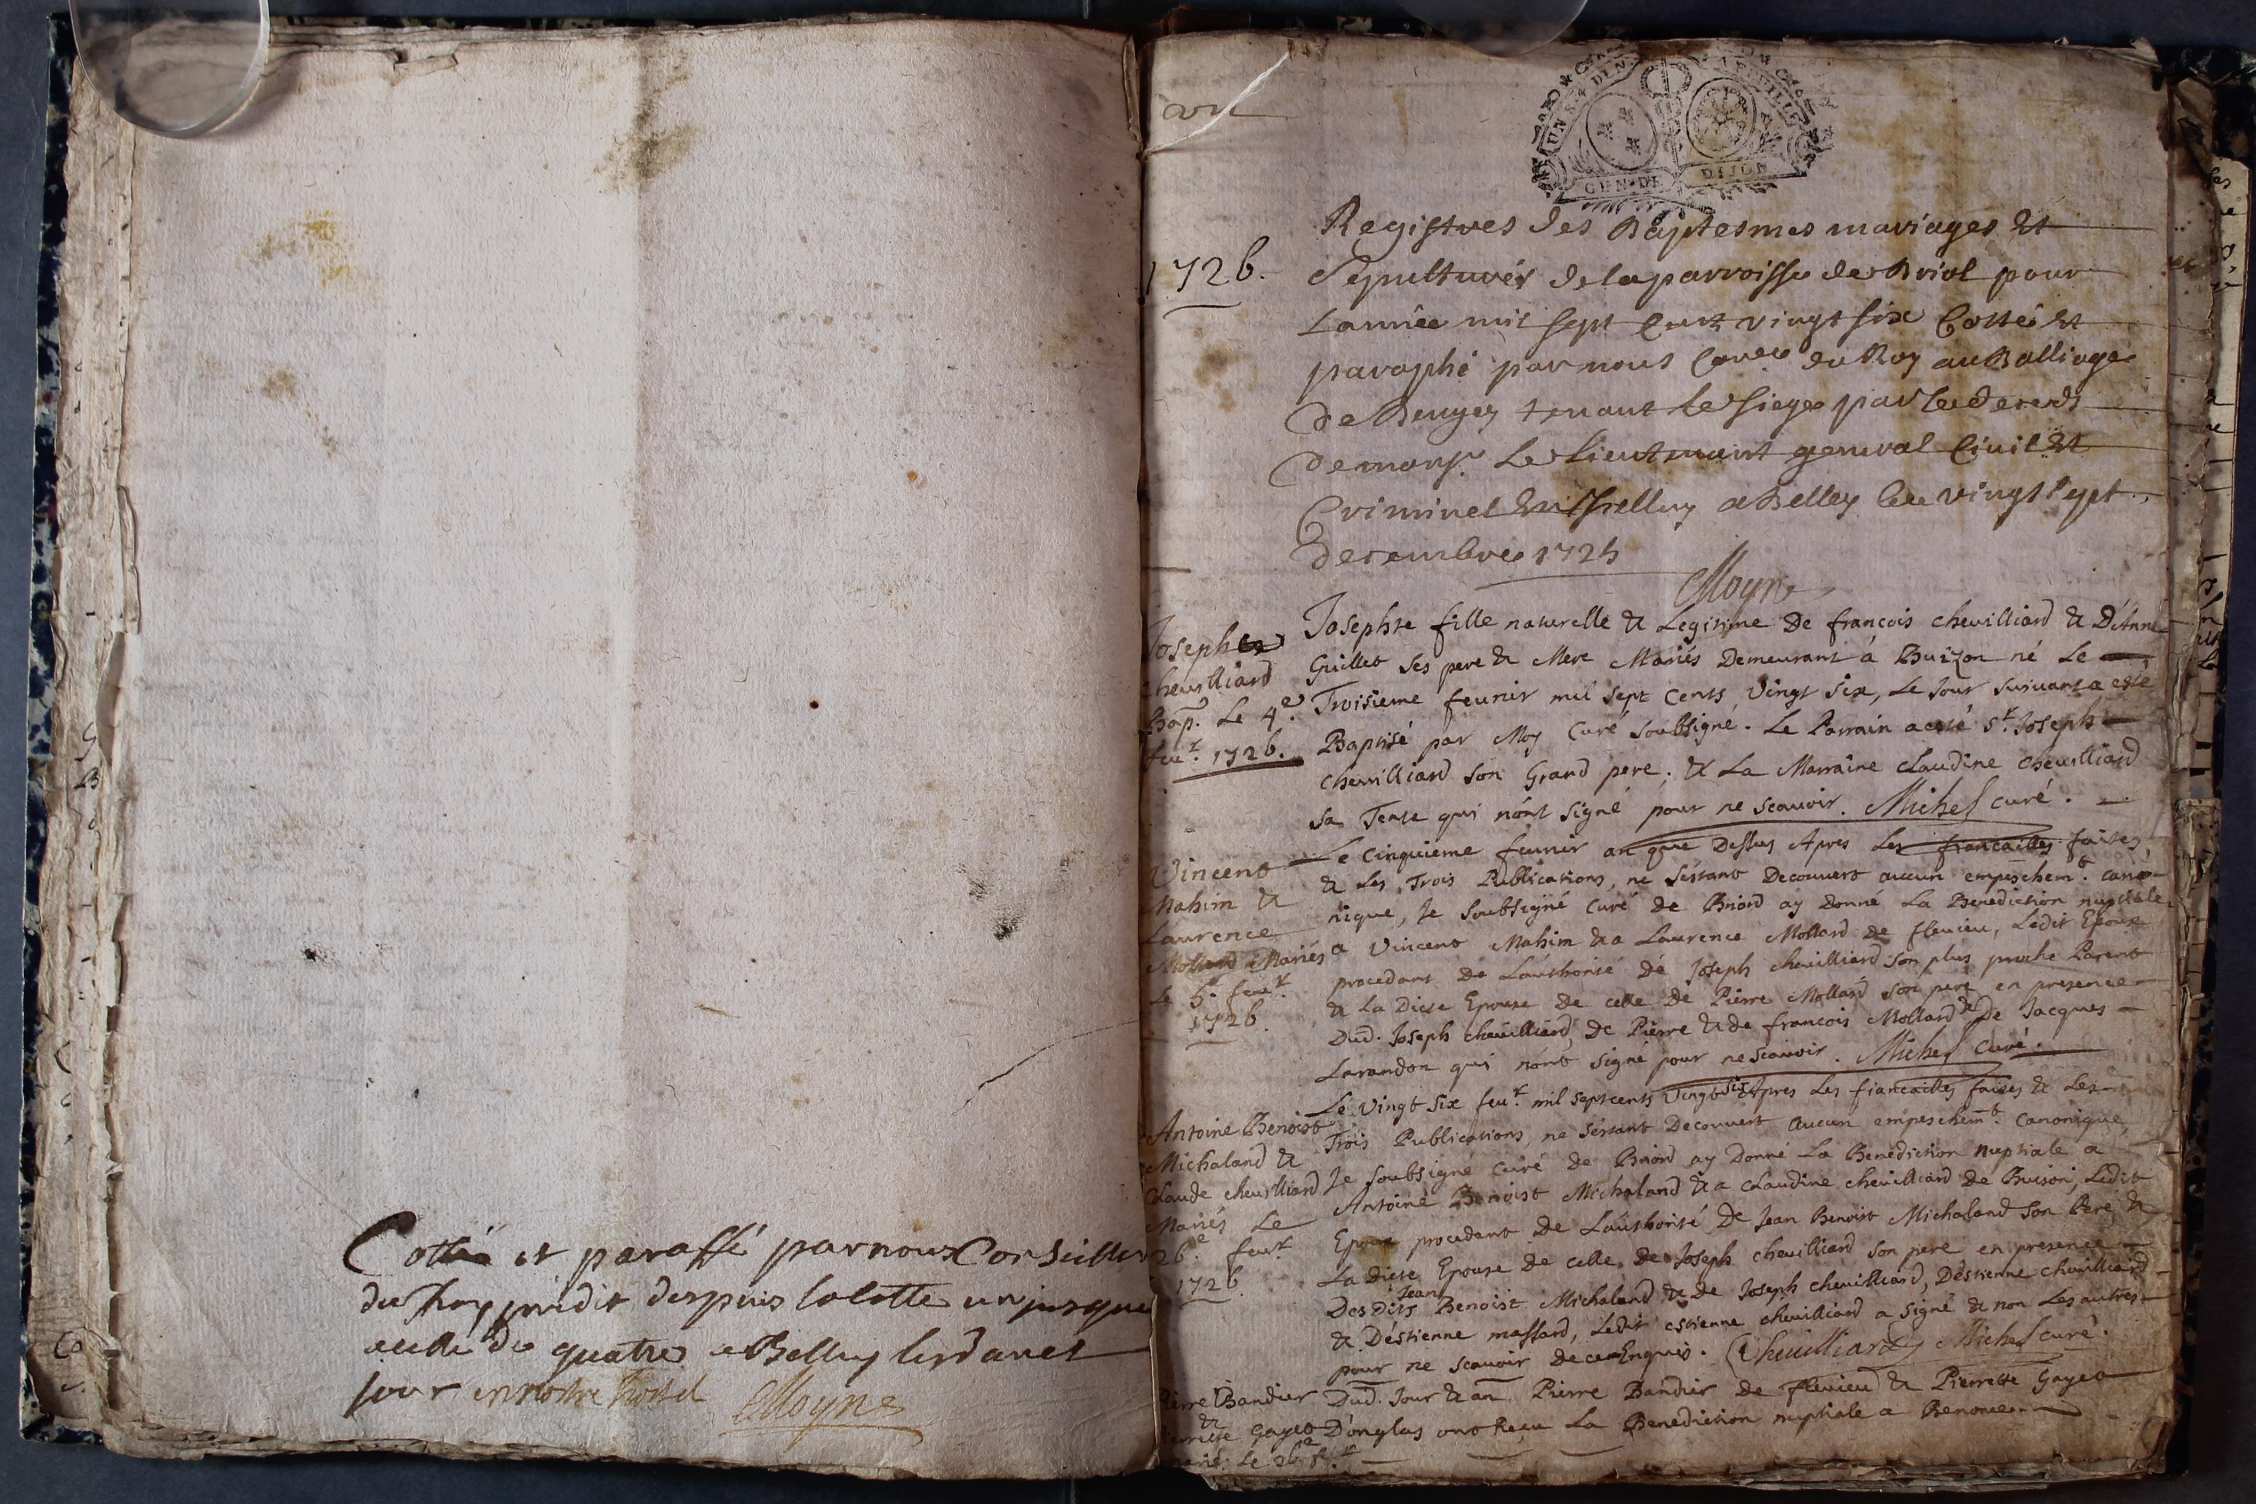 Cottée et paraffé par nous Conseiller
du Roy susdit despuis la cotte un jusque
a celle de quatre a Belley led avet
jour en nostre hostel Moyne
un
GEN DE DIJON
1726.
Registres des Baptesmes mariages et
Sepultures de la parroisse de Briol pour
Lannée mil sept Cent vingt six Cotté et
paraphé par nous Coner du Roy au Balliage
de Beugey tenant le siege par le deceds
de monsr. Le Lieutenant general Civil et
Criminel a Belley le vingt sept
decembre 1725
Moyne
Josephte
Chevilliard
Bap. Le 4e.
feur. 1726.
Josephte fille naturelle & Legitime De françois chevilliard & D'Anne
Guillet ses pere & Mere Mariés Demeurant á Buizon né Le
Troisieme feurier mil sept Cents Vingt Six, Le Jour suivant a esté
Baptisé par Moy Curé soubsigné. Le Parrain a esté sr. Joseph
Chevilliard son Grand pere, & La Marraine Claudine Chevilliard
sa Tente qui n'ont signé pour ne scauoir. Michel curé.
Vincent
Mahim &
Laurence
Mollard Mariés
Le 5e. feur.
1726.
Le Cinquiéme feurier an que Dessus Apres Les fiancailles faites,
& Les Trois Publications, ne s'estant Decouvert aucun empeschemt. cano-
nique, Je soubsigné Curé de Briord ay Donné La Benediction nuptiale
a Vincent Mahim & a Laurence Mollard de flevieu, Ledit Epoux
procedant de L'authorité de Joseph chevilliard son plus proche Parent
& La Dite Epouse de celle de Pierre Mollard son pere en presence
Dud. Joseph chevilliard, de Pierre & de francois Mollard & de Jacques
Larandon qui n'ont signé pour ne scauoir. Michel Curé.
Antoine Benoist
Michaland &
Claude chevilliard
Mariés Le
26e. feur.
1726.
Le Vingt Six feur. mil sept cents Vingt six Apres Les fiancailles faites & Les
Trois Publications, ne s'estant Decouvert Aucun empeschemt. Canonique,
Je soubsigné Curé de Briord ay Donné La Benediction Nuptiale a
Antoine Benoist Michaland & a Claudine chevilliard de Buison, Ledit
Epoux procedant De L'authorité De Jean Benoist Michaland son Pere &
La Dite Epouse de celle de Joseph chevilliard son pere en presence
Des Dits Jean Benoist Michaland & de Joseph chevilliard, D'estienne chevilliard
& D'estienne massard, Ledit estienne chevilliard a signé & non Les autres
pour ne scauoir de ce Enquis. Chevilliard Michel curé.
Pierre Bandier
&
Pierrette Gayet
Mariés Le 26e fr.
Dud. Jour & an Pierre Bandier de flevieu & Pierrette Gayet
D'onglas ont Reçu La Benediction nuptiale a Benonce